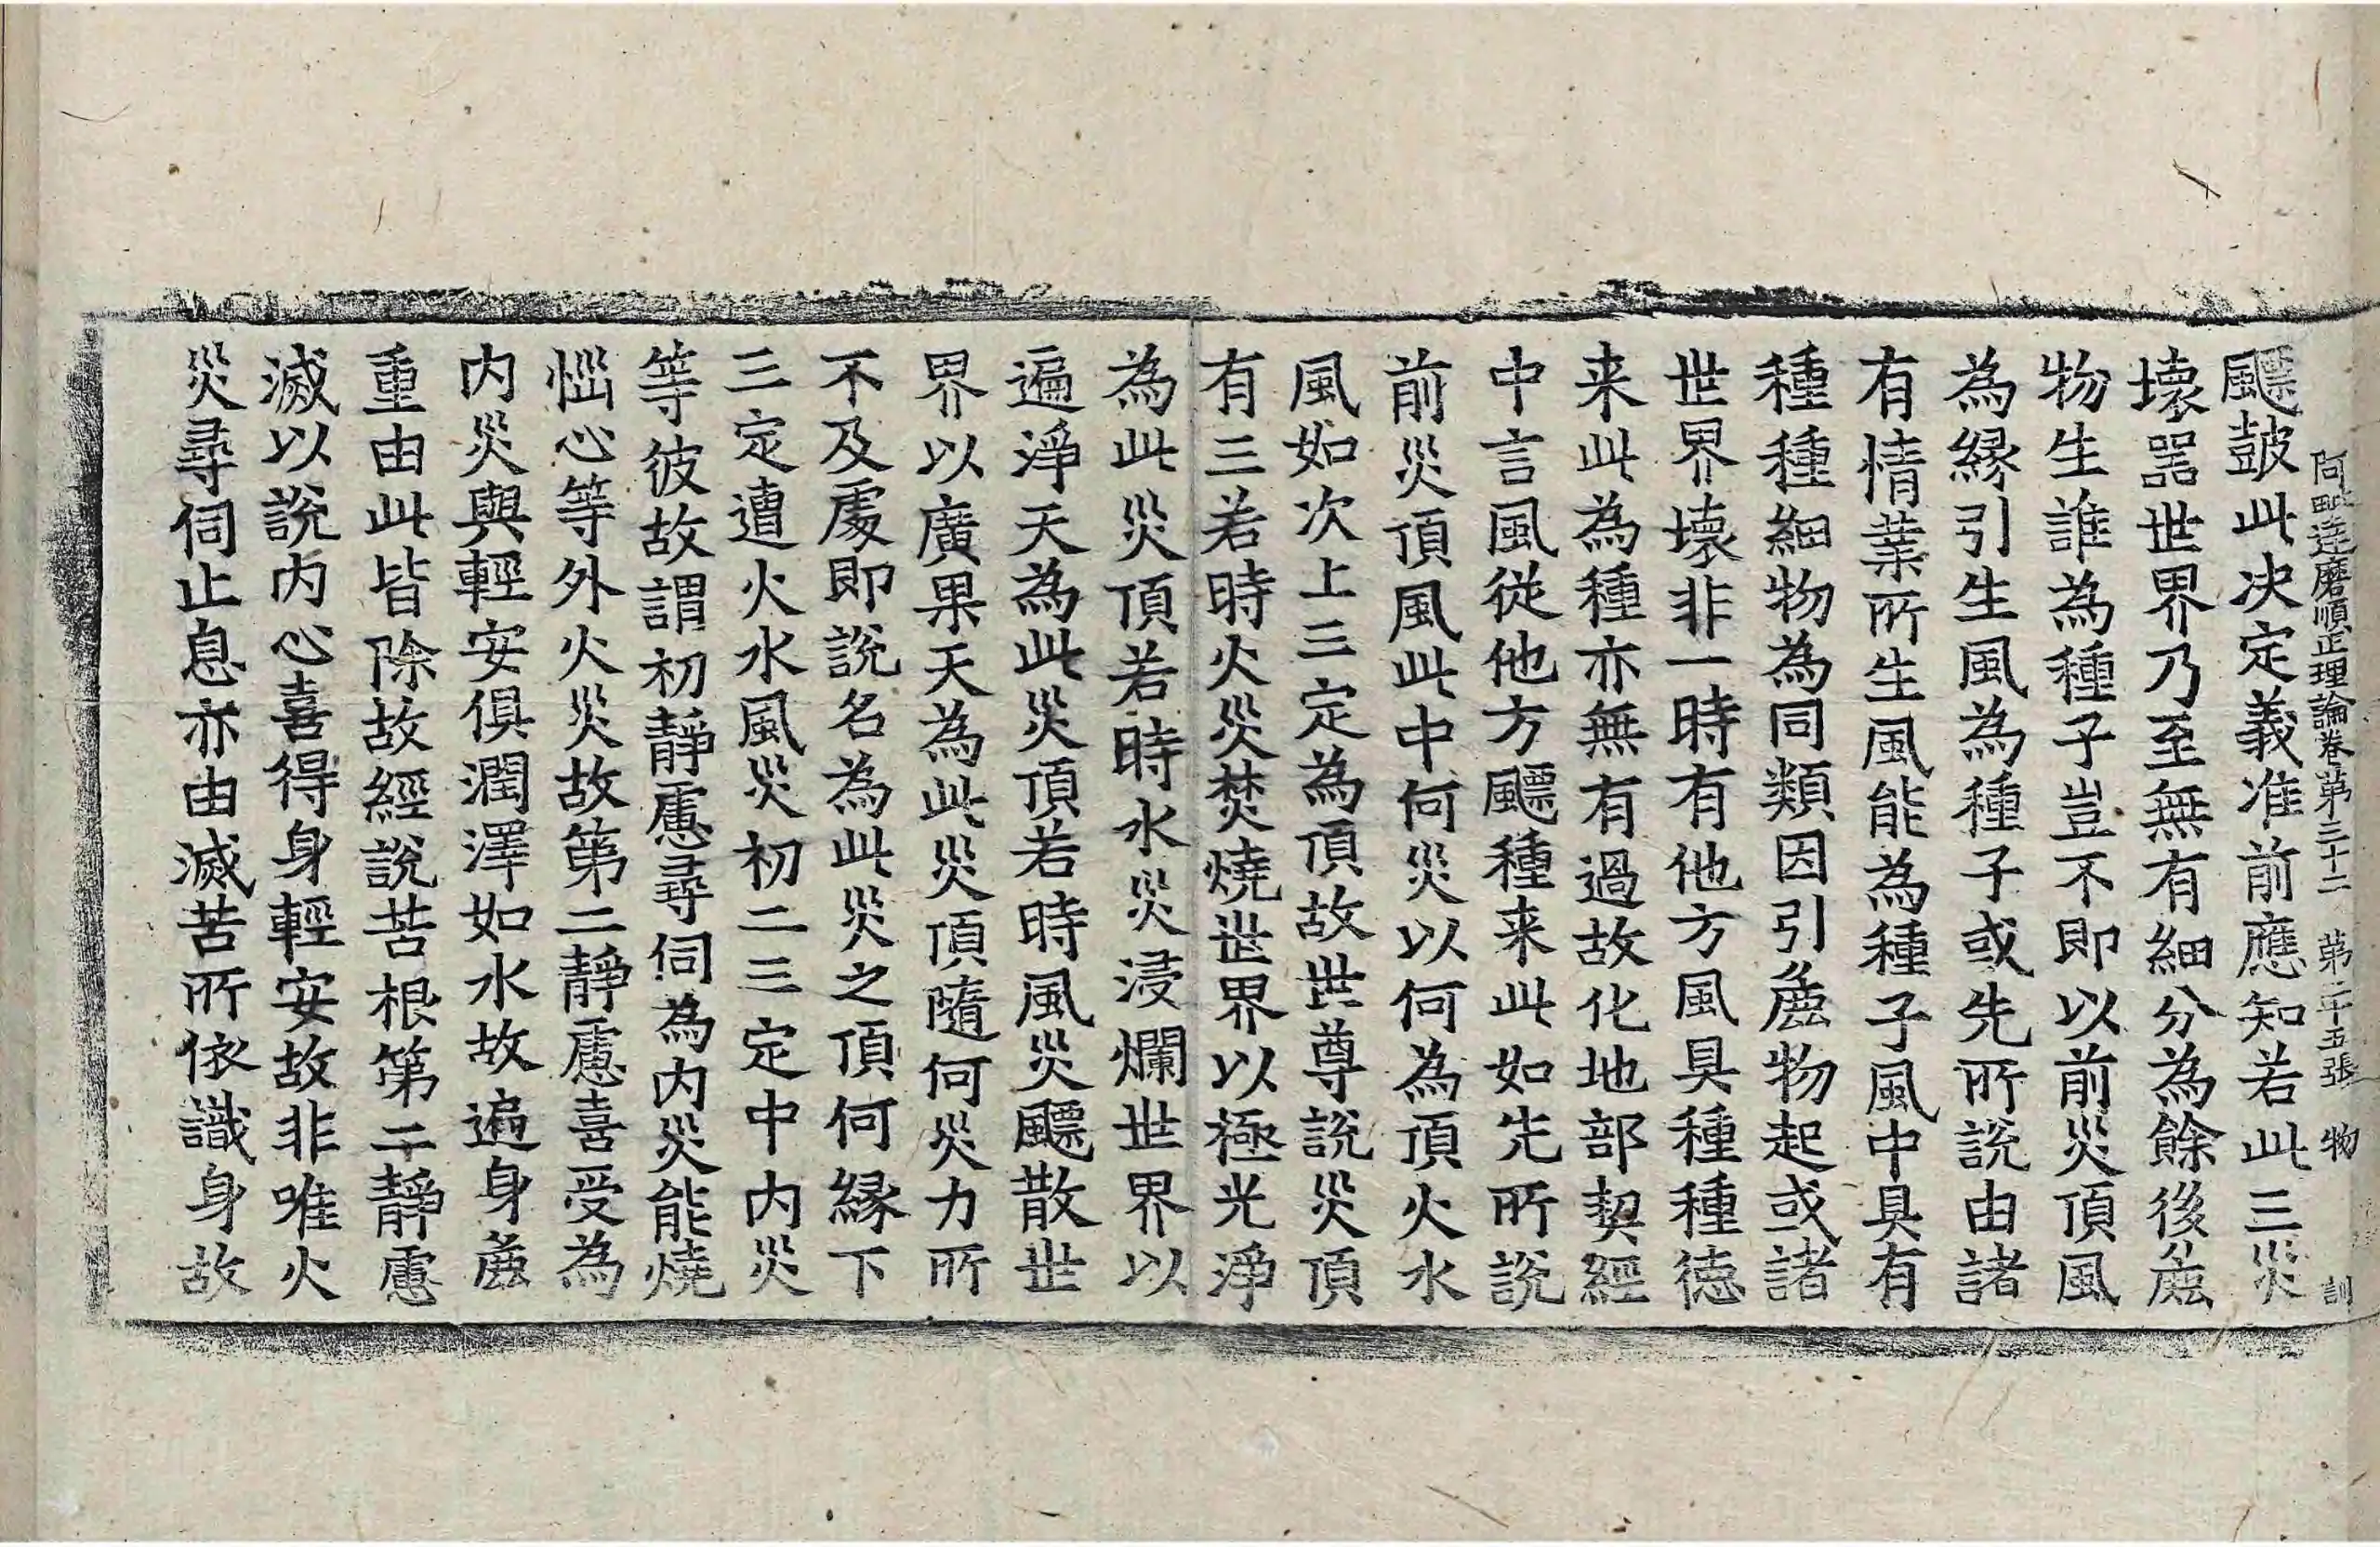 阿毗達磨順正理論卷第三十二 第二十五張 物 訓
飄鼓此决定義准前應知若此三災
壞器世界乃至無有細分為餘後麁
物生誰為種子豈不即以前災頂風
為縁引生風為種子或先所說由諸
有情業所生風能為種子風中具有
種種細物為同類因引麁物起或諸
世界壞非一時有他方風具種種德
来此為種亦無有過故化地部契經
中言風從他方飄種来此如先所說
前災頂風此中何災以何為頂火水
風如次上三定為頂故世尊說災頂
有三若時火災焚燒世界以極光淨
為此災頂若時水災浸爛世界以
遍淨天為此災頂若時風災飄散世
界以廣果天為此災頂隨何災力所
不及處即說名為此災之頂何縁下
三定遭火水風災初二三定中内災
等彼故謂初靜慮尋伺為内災能燒
惱心等外火災故第二靜慮喜受為
内災與輕安俱潤澤如水故遍身麁
重由此皆除故經說苦根第二靜慮
滅以說内心喜得身輕安故非唯火
災尋伺止息亦由滅苦所依識身故